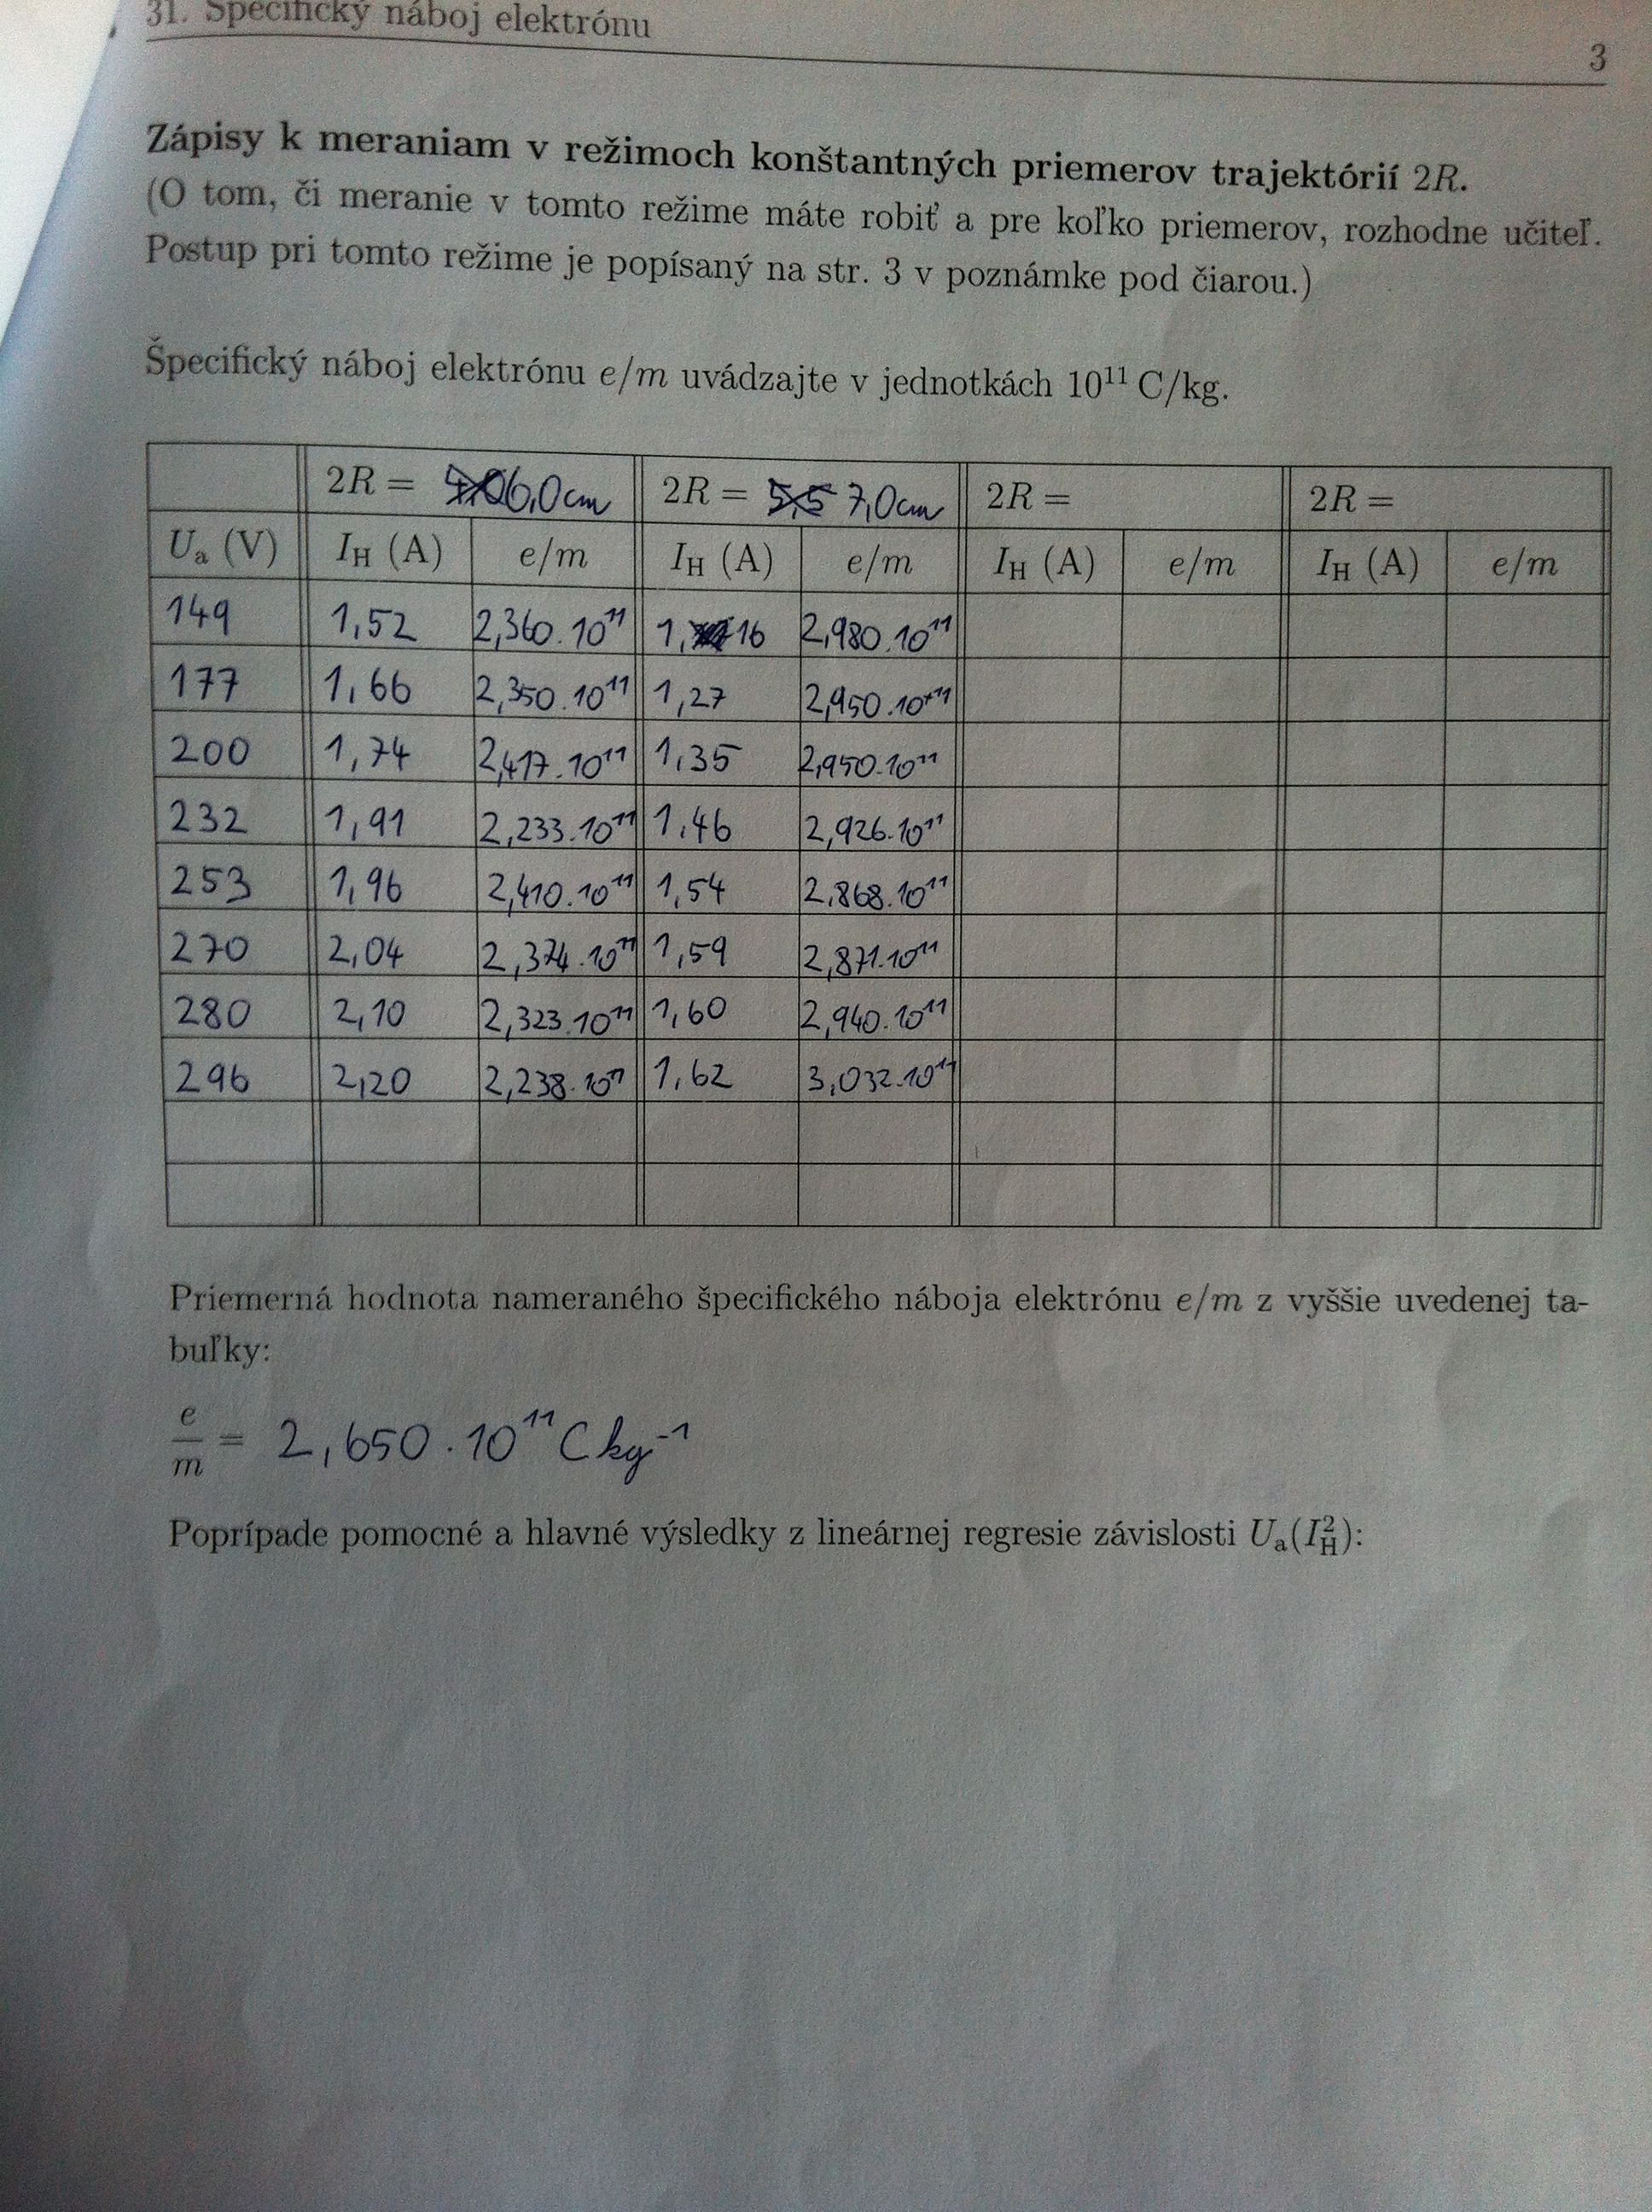 31. Špecifický náboj elektrónu
3
Zápisy k meraniam v režimoch konštantných priemerov trajektórií 2R.
(O tom, či meranie v tomto režime máte robiť a pre koľko priemerov, rozhodne učiteľ.
Postup pri tomto režime je popísaný na str. 3 v poznámke pod čiarou.)
Špecifický náboj elektrónu e/m uvádzajte v jednotkách 10¹¹ C/kg.
2R = 6,0cm 2R = 5,5 7,0cm 2R = 2R =
Uₐ (V) I_H (A) e/m I_H (A) e/m I_H (A) e/m I_H (A) e/m
149 1,52 2,360.10¹¹ 1,16 2,980.10¹¹
177 1,66 2,350.10¹¹ 1,27 2,950.10¹¹
200 1,74 2,417.10¹¹ 1,35 2,950.10¹¹
232 1,91 2,233.10¹¹ 1,46 2,926.10¹¹
253 1,96 2,410.10¹¹ 1,54 2,868.10¹¹
270 2,04 2,374.10¹¹ 1,59 2,871.10¹¹
280 2,10 2,323.10¹¹ 1,60 2,940.10¹¹
296 2,20 2,238.10¹¹ 1,62 3,032.10¹¹
Priemerná hodnota nameraného špecifického náboja elektrónu e/m z vyššie uvedenej ta-
buľky:
e/m = 2,650.10¹¹ C kg⁻¹
Poprípade pomocné a hlavné výsledky z lineárnej regresie závislosti Uₐ(I²_H):